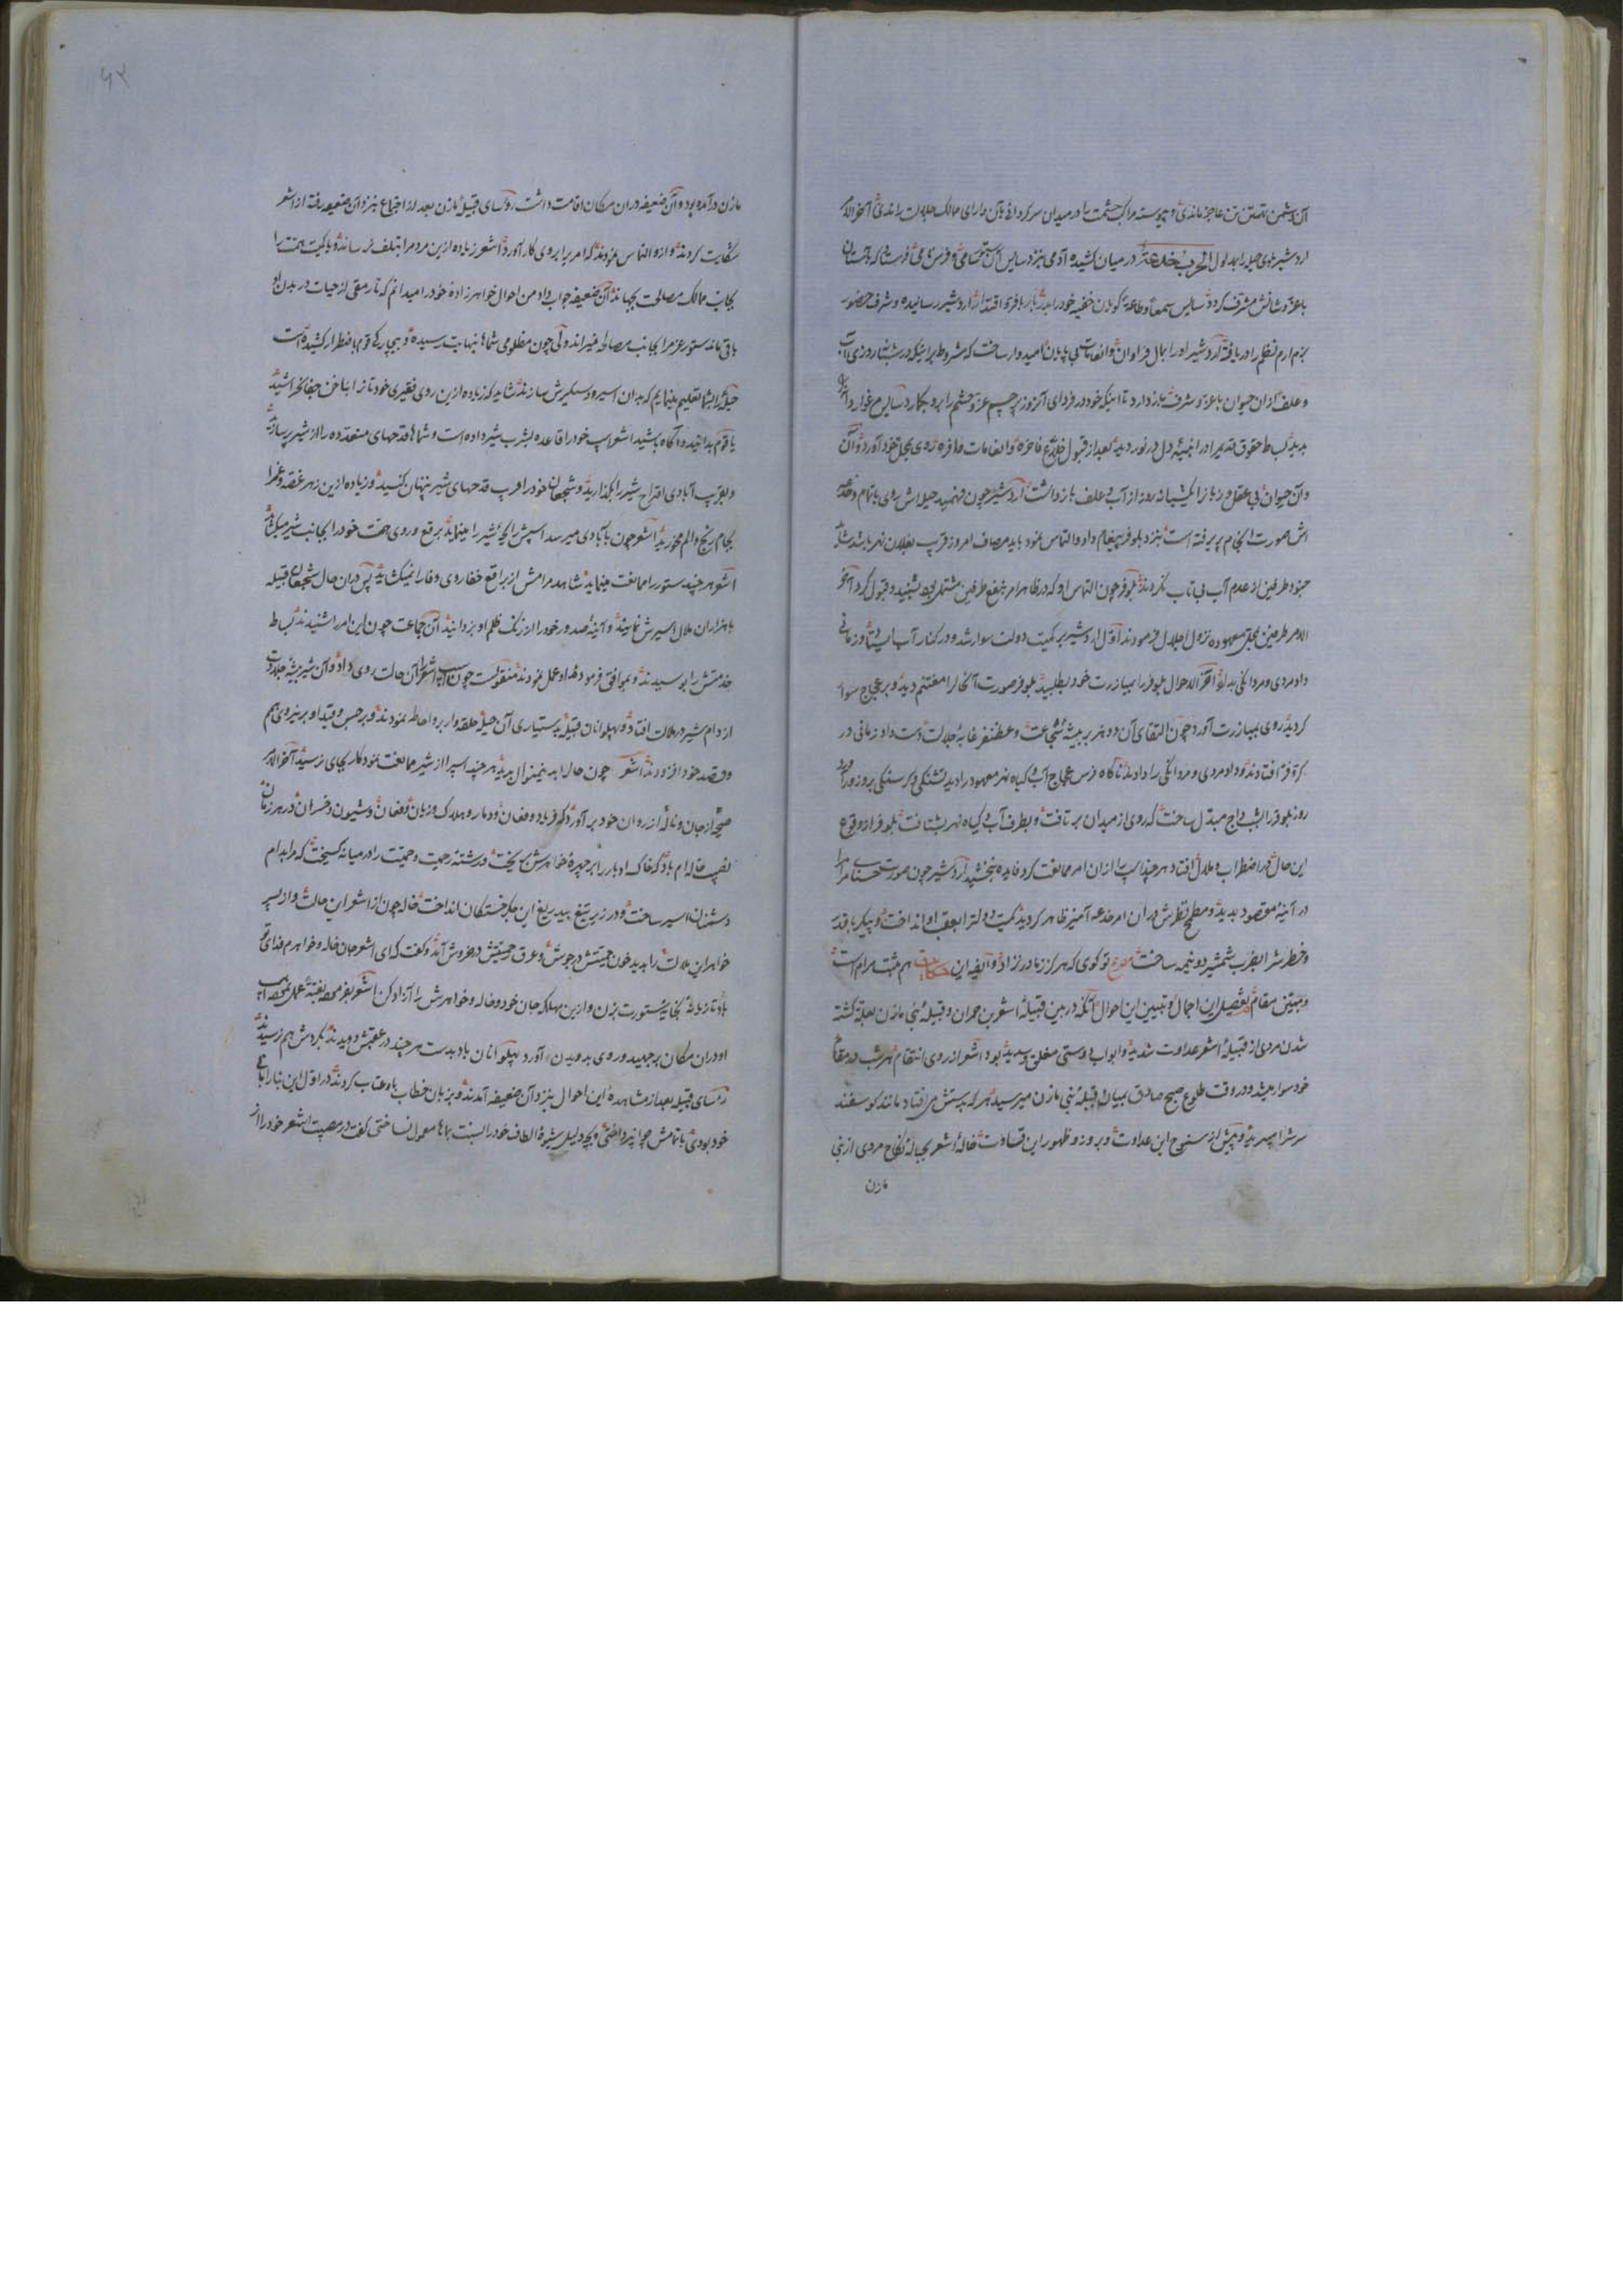 آن دشمن تهمتن تن عاجز ماندی و پیوسته مراکب حشمت را در میدان سرکردانی آن دارای ممالک جلالت راندی آخر الامر
اردشیر روی حیله را بمدلول الحرب خدعة در میان کشیده آدمی نزد سایس آن ستور سامی و فرس نامی فرستاد که آستان
با عز و شانش مشرف کردد سایس سمعا و طاعة کویان خفیه خود را بدربار با فر و اقتدار اردشیر رسانیده و شرف حضور
بزم ارم نظم را دریافته اردشیر او را بمال فراوان و انعامات بی پایان امیدوار ساخت که مشروط بر اینکه در شبانه روزی آب
و علف از آن حیوان با عز و شرف باز دارد تا اینکه خود در فردای آنروز پرچم عز و حشم را برو بکمارد سایس
بدید بساط حقوق قدیم را در انجمن دل در نوردیده بعد از قبول خلاع فاخره و انعامات وافره روی بمحل خود آورد و آن
و آن حیوان بی عقل و زبان را یکشبانه روز از آب و علف باز داشت اردشیر چون فهمید حیله اش روی باتمام و خدعه
اش صورت انجام پذیرفته است نزد بلوفر پیغام داد و التماس نمود باید مصاف امروز قریب بفلان نهر باشد تا
جنود طرفین از عدم آب بی تاب نکردند بلوفر چون التماس او که در ظاهر امر بنفع طرفین مشتمل بود بشنید و قبول کرد آخر
الامر طرفین بمحل معهوده نزول اجلال فرمودند اول اردشیر بر کمیت دولت سوار شد و در کنار آب ایستاد و زمانی
داد مردی و مردانکی بداد آخر الاحوال بلوفر را بمبارزت خود بطلبید بلوفر صورت آنحال را مغتنم دید و بر عجاج سوار
کردید روی بمبارزت آورد چون التقای آن دو هزبر بیشه شجاعت و غضنفر غابه جلالت دست داد زمانی در
کر و فر افتادند و داد مردی و مردانکی را دادند ناکاه فرس عجاج آب و کیاه نهر معهود را دید تشنکی و کرسنکی بروزور آورد
روز بلوفر را بشب داج مبدل ساخت که روی از میدان بر تافت و بطرف آب و کیاه نهر بشتافت بلوفر از وقوع
این حال در اضطراب و ملال افتاد هر چند اسب را از آن امر ممانعت کرد فایده نبخشید اردشیر چون صورت حسنای مرام را
در آینه مقصود بدید و مطمح نظرش در آن امر خدعه آمیز ظاهر کردید کمیت دولت را بعقب او انداخت و پیکر با قدر
و خطرش را بضرب شمشیر دو نیمه ساخت مصرع تو کوی که هرکز ز مادر نزاد و ایضا این حکایت هم مثبت مرام است
و مبین مقام تفصیل این اجمال و تبیین این احوال آنکه در بین قبیله اشعر بن حمران و قبیله بنی مازن بعلت کشته
شدن مردی از قبیله اشعر عداوت شدید و ابواب دوستی مغلق و سدید بود اشعر از روی انتقام هر شب در مقام
خود سوار میشد و در وقت طلوع صبح صادق بمیان قبیله بنی مازن میرسید هر که بدستش می افتاد مانند کوسفند
سرش را میبرید و پیش از سنوح این عداوت و بروز و ظهور این قساوت خاله اشعر بحباله نکاح مردی از بنی
مازن
۵۲
مازن در آمده بود و آن ضعیفه در آن مکان اقامت داشت رؤسای قبیله مازن بعد از اجتماع نزد آن ضعیفه رفته از اشعر
شکایت کردند و ازو التماس نمودند که امری را بروی کار آورد اشعر زیاده ازین مردم را بتلف نرساند و یا کمیت همت را
بجانب ممالک مصالحت بجهاند آن ضعیفه جواب داد من احوال خواهرزاده خود را میدانم که تا رمقی از حیات در بدن او
باقی ماند ستور عزم را بجانب مصالحه نمیراند ولی چون مظلومی شما بنهایت رسیده و بیچارکی قوم باضطرار کشیده است
حیله را بشما تعلیم مینمایم که بدان اسیر و دستکیرش سازند شاید که زیاده ازین روی فقیری خود تا زار با ناخن جفا نخراشید
یا قوم بدانید و آکاه باشید اشعر اسب خود را قاعده بشرب شیر داده است و شما قدحهای متعدده را از شیر پر سازید
و بقرب آبادی اقداح شیر را بکذارید و شجعان خود را قریب قدحهای شیر پنهان کنید و زیاده ازین زهر غصه و غم را
بجام رنج و الم مخورید اشعر چون بآبادی میرسد اسپش رایحه شیر را مینماید بر قع و روی همت خود را بجانب شیر میکشاند
اشعر هر چند ستور را ممانعت مینماید شاهد مرامش از براقع خفا روی وفا را نمیکشاید پس در آن حال شجعان قبیله
با هزاران ملال اسیرش نمایند و آینه صدور خود را از زنک ظلم او بزدایند آن جماعت چون این امر را شنیدند بساط
خدمتش را بوسیدند و بموافق فرموده او عمل نمودند منقولست چون اسب اشعر را آن حالت روی داد و آن شیر بیشه جلالت
از دام شیر در ملالت افتاد و پهلوانان قبیله بدستیاری آن حیله حلقه وار برو احاطه نمودند و بر حبس و قید او بر نیروی هم
و قصد خود افزودند اشعر چون حال را بدینمنوال بدید هر چند اسپ را از شیر ممانعت نمود کار بجای نرسید آخر الامر
صیحه از جان و ناله از روان خود برآورد که فریاد و فغان و دمار و هلاک و زیان و فغان و شیون و خسران در هر زمان
نصیب خاله ام باد که خاک ادبار را بر چهره خواهرش بیخت و رشته رحمت و حمیت را در میانه کسیخت که مرا بدام
دشمنان اسیر ساخت و در زیر تیغ بیدریغ این جکر خستکان انداخت خاله چون از اشعر این حالت و از پسر
خواهر این ملالت را بدید خون حمیتش در جوش و عرق حمیتش در خروش آمد و کفت که ای اشعر جان خاله و خواهرم فدای تو
باد تازیانه بخایه ستورت بزن و ازین مهلکه جان خود و خاله و خواهرش را آزاد کن اشعر بفرموده
او در آن مکان برجهید و روی بدویدن آورد پهلوانان باد بدست هر چند در عقبش دویدند بکردش هم نرسیدند
رؤسای قبیله بعد از مشاهده این احوال بنزد آن ضعیفه آمدند و بزبان خطاب باو عتاب کردند در اول این بنا را بانی
خود بودی باتمامش چرا نپرداختی و بچه دلیل شیوه الطاف خود را نسبت بما معمول نساختی کفت در مصیبت اشعر خود را از